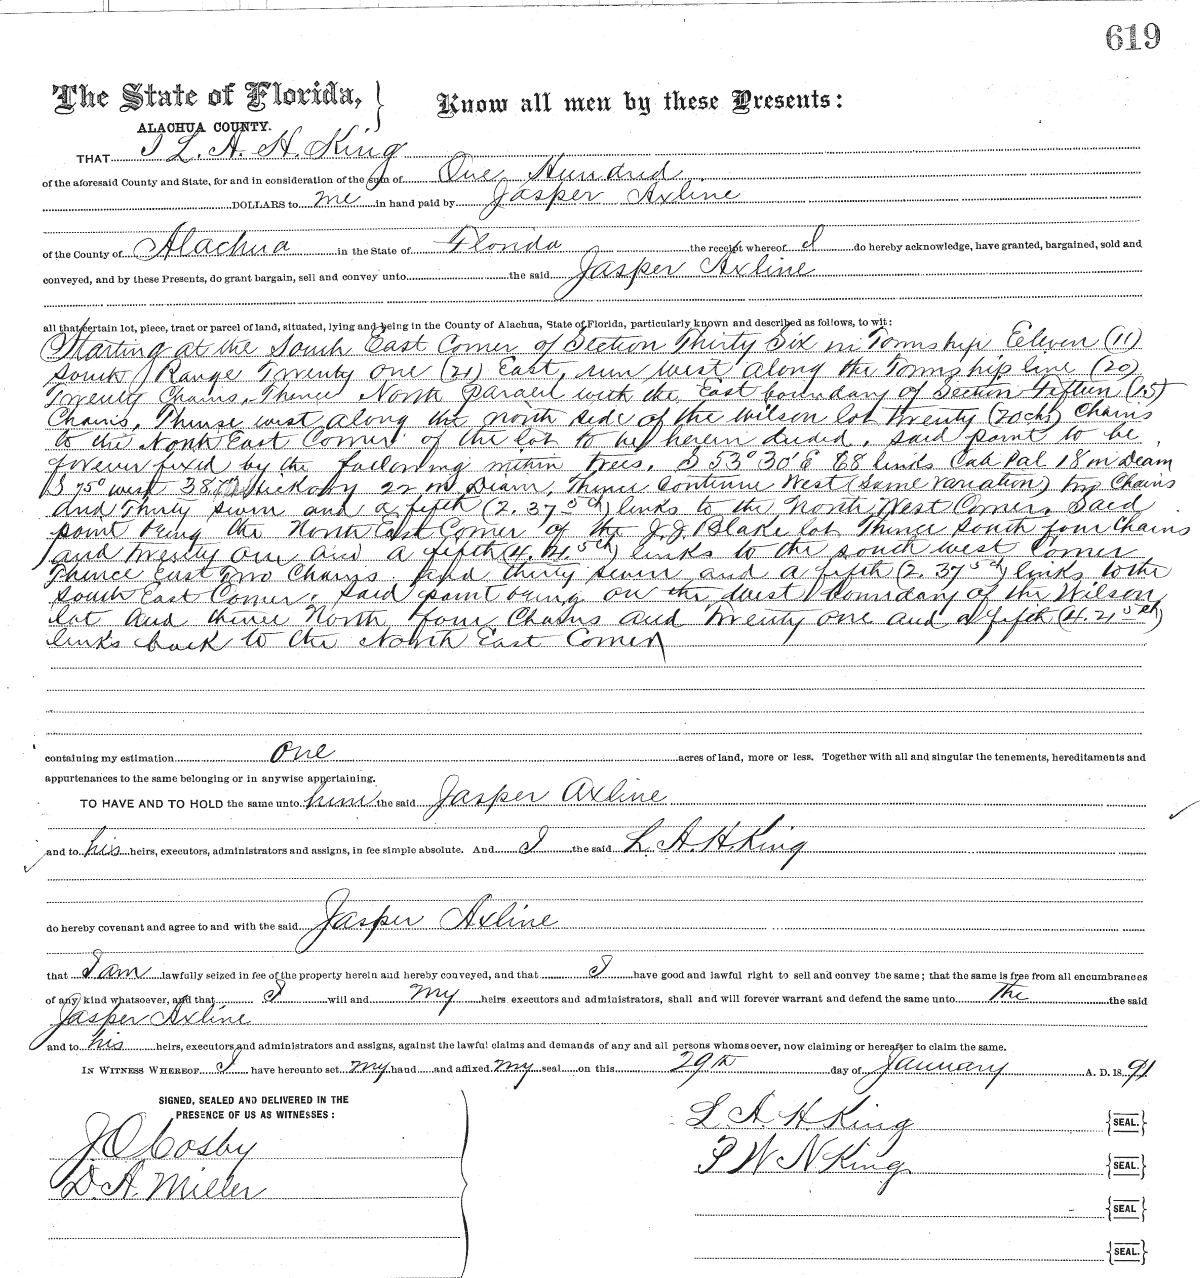 619
The State of Florida, } Know all men by these Presents:
ALACHUA COUNTY.
THAT I L. A. H. King
of the aforesaid County and State, for and in consideration of the sum of One Hundred
DOLLARS to me in hand paid by Jasper Axline
of the County of Alachua in the State of Florida the receipt whereof I do hereby acknowledge, have granted, bargained, sold and
conveyed, and by these Presents, do grant bargain, sell and convey unto the said Jasper Axline
all that certain lot, piece, tract or parcel of land, situated, lying and being in the County of Alachua, State of Florida, particularly known and described as follows, to wit:
Starting at the South East Corner of Section Thirty Six in Township Eleven (11)
South Range Twenty one (21) East, run west along the Township line (20)
Twenty Chains, Thence North Parael with the East boundary of Section Fifteen (15)
Chains, Thense west along the north side of the Wilson lot Twenty (20 chs) Chains
to the North East Corner of the lot to be herein deeded, said point to be
forever fixed by the following trees. S 53° 30' E 88 links Cab Pal 18 in Deam
S 75° west 38 Hickory 22 in Deam, Thence Continue West (same variation) two Chains
and Thirty seven and a fifth (2.37 5th) links to the North West Corner, Said
point being the North East Corner of the J.J. Blake lot Thince South four Chains
and twenty one and a fifth (4. 5th) links to the south west Corner
Thence East Two Chains and thirty seven and a fifth (2.37 5th) links to the
South East Corner, Said point being on the West boundary of the Wilson
lot And thence North four Chains and twenty one and a fifth (4.21 5th)
links back to the North East Corner
containing my estimation one acres of land, more or less. Together with all and singular the tenements, hereditaments and
appurtenances to the same belonging or in anywise appertaining.
TO HAVE AND TO HOLD the same unto him the said Jasper Axline
and to his heirs, executors, administrators and assigns, in fee simple absolute. And I the said L. A. H. King
do hereby covenant and agree to and with the said Jasper Axline
that I am lawfully seized in fee of the property herein and hereby conveyed, and that I have good and lawful right to sell and convey the same; that the same is free from all encumbrances
of any kind whatsoever, and that I will and my heirs executors and administrators, shall and will forever warrant and defend the same unto the the said
Jasper Axline
and to his heirs, executors and administrators and assigns, against the lawful claims and demands of any and all persons whomsoever, now claiming or hereafter to claim the same.
IN WITNESS WHEREOF I have hereunto set my hand and affixed my seal on this 29th day of January A. D. 1891
SIGNED, SEALED AND DELIVERED IN THE
PRESENCE OF US AS WITNESSES:
J O Cosby
D. A. Miller
L A H King {SEAL.}
P W N King {SEAL.}
{SEAL}
{SEAL.}